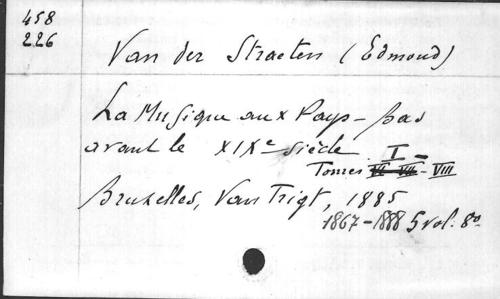 458
226
Van der Straeten (Edmond)
La Musique aux Pays-bas
avant le XIXe siècle. I -
Tomes VI VII - VIII
Bruxelles, Van Trigt, 1885
1867-1888 5 vol. 8o